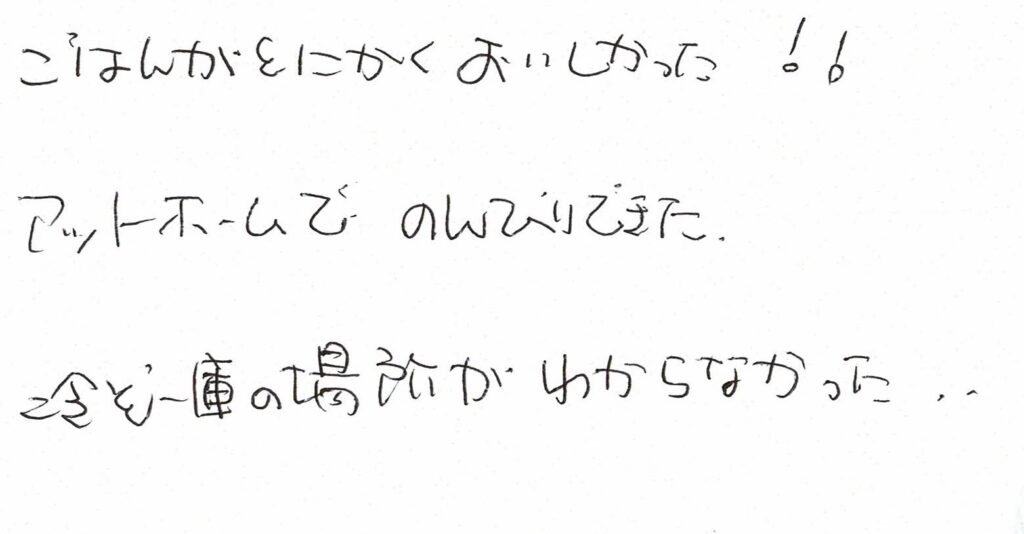 ごはんがとにかくおいしかった!!
アットホームで のんびりできた.
冷ぞー庫の場所が わからなかった..